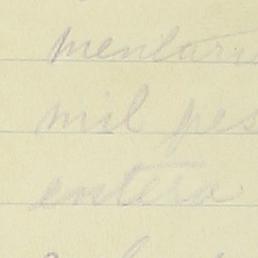 mentary
mil pes
entera